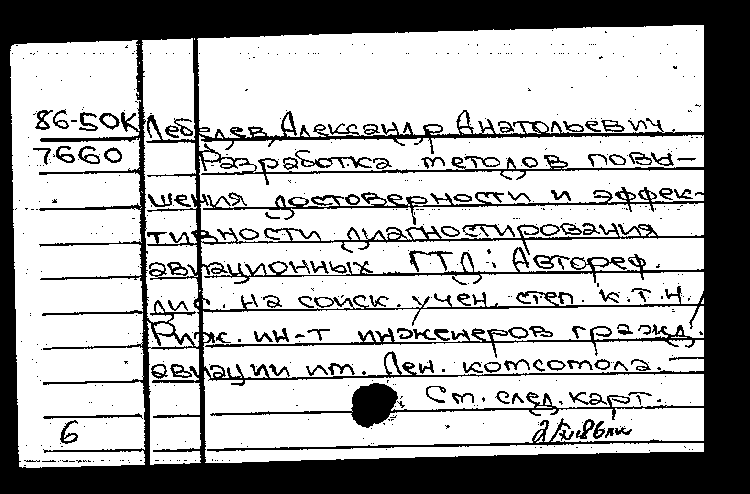 86-50К Лебедев, Александр Анатольевич.
7660 Разработка методов повы-
шения достоверности и эффек-
тивности диагностирования
авиационных ГТД: Автореф.
дис. на соиск. учен. степ. к.т.н./
Риж. ин-т инженеров гражд.
авиации им. Лен. комсомола. —
См. след. карт.
6